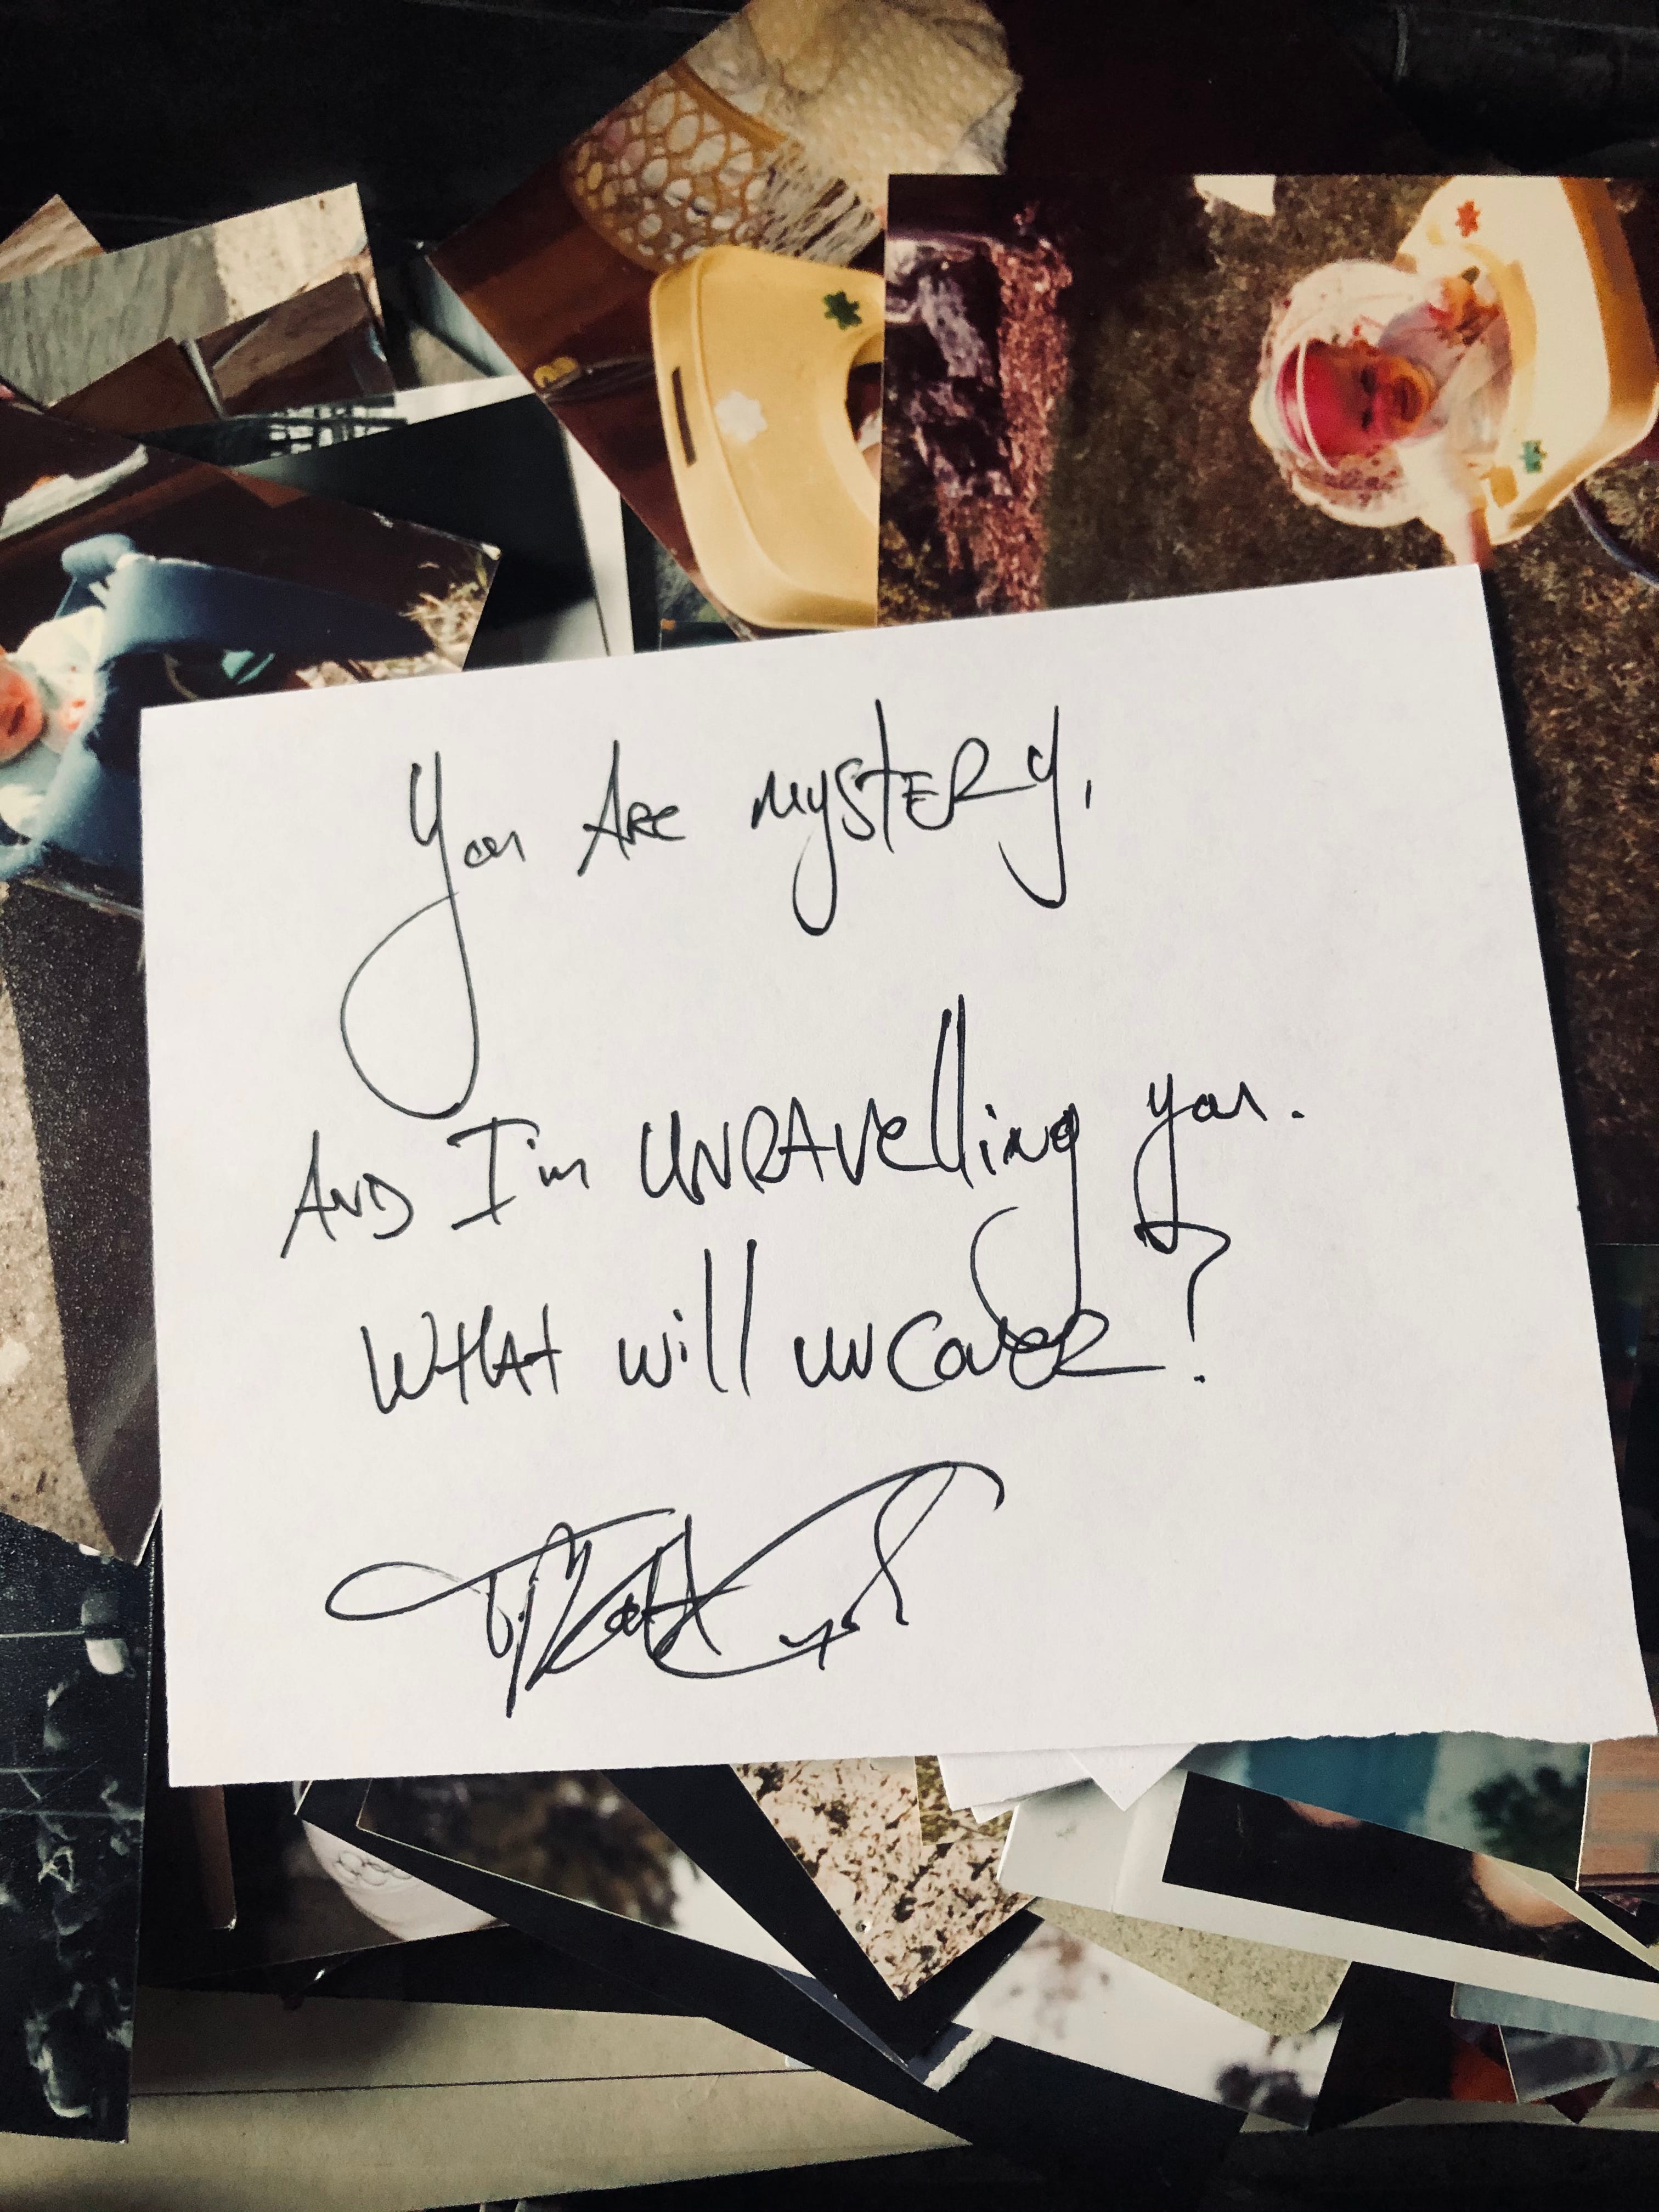 You Are mystery,
And I'm unravelling you.
What will uncover?